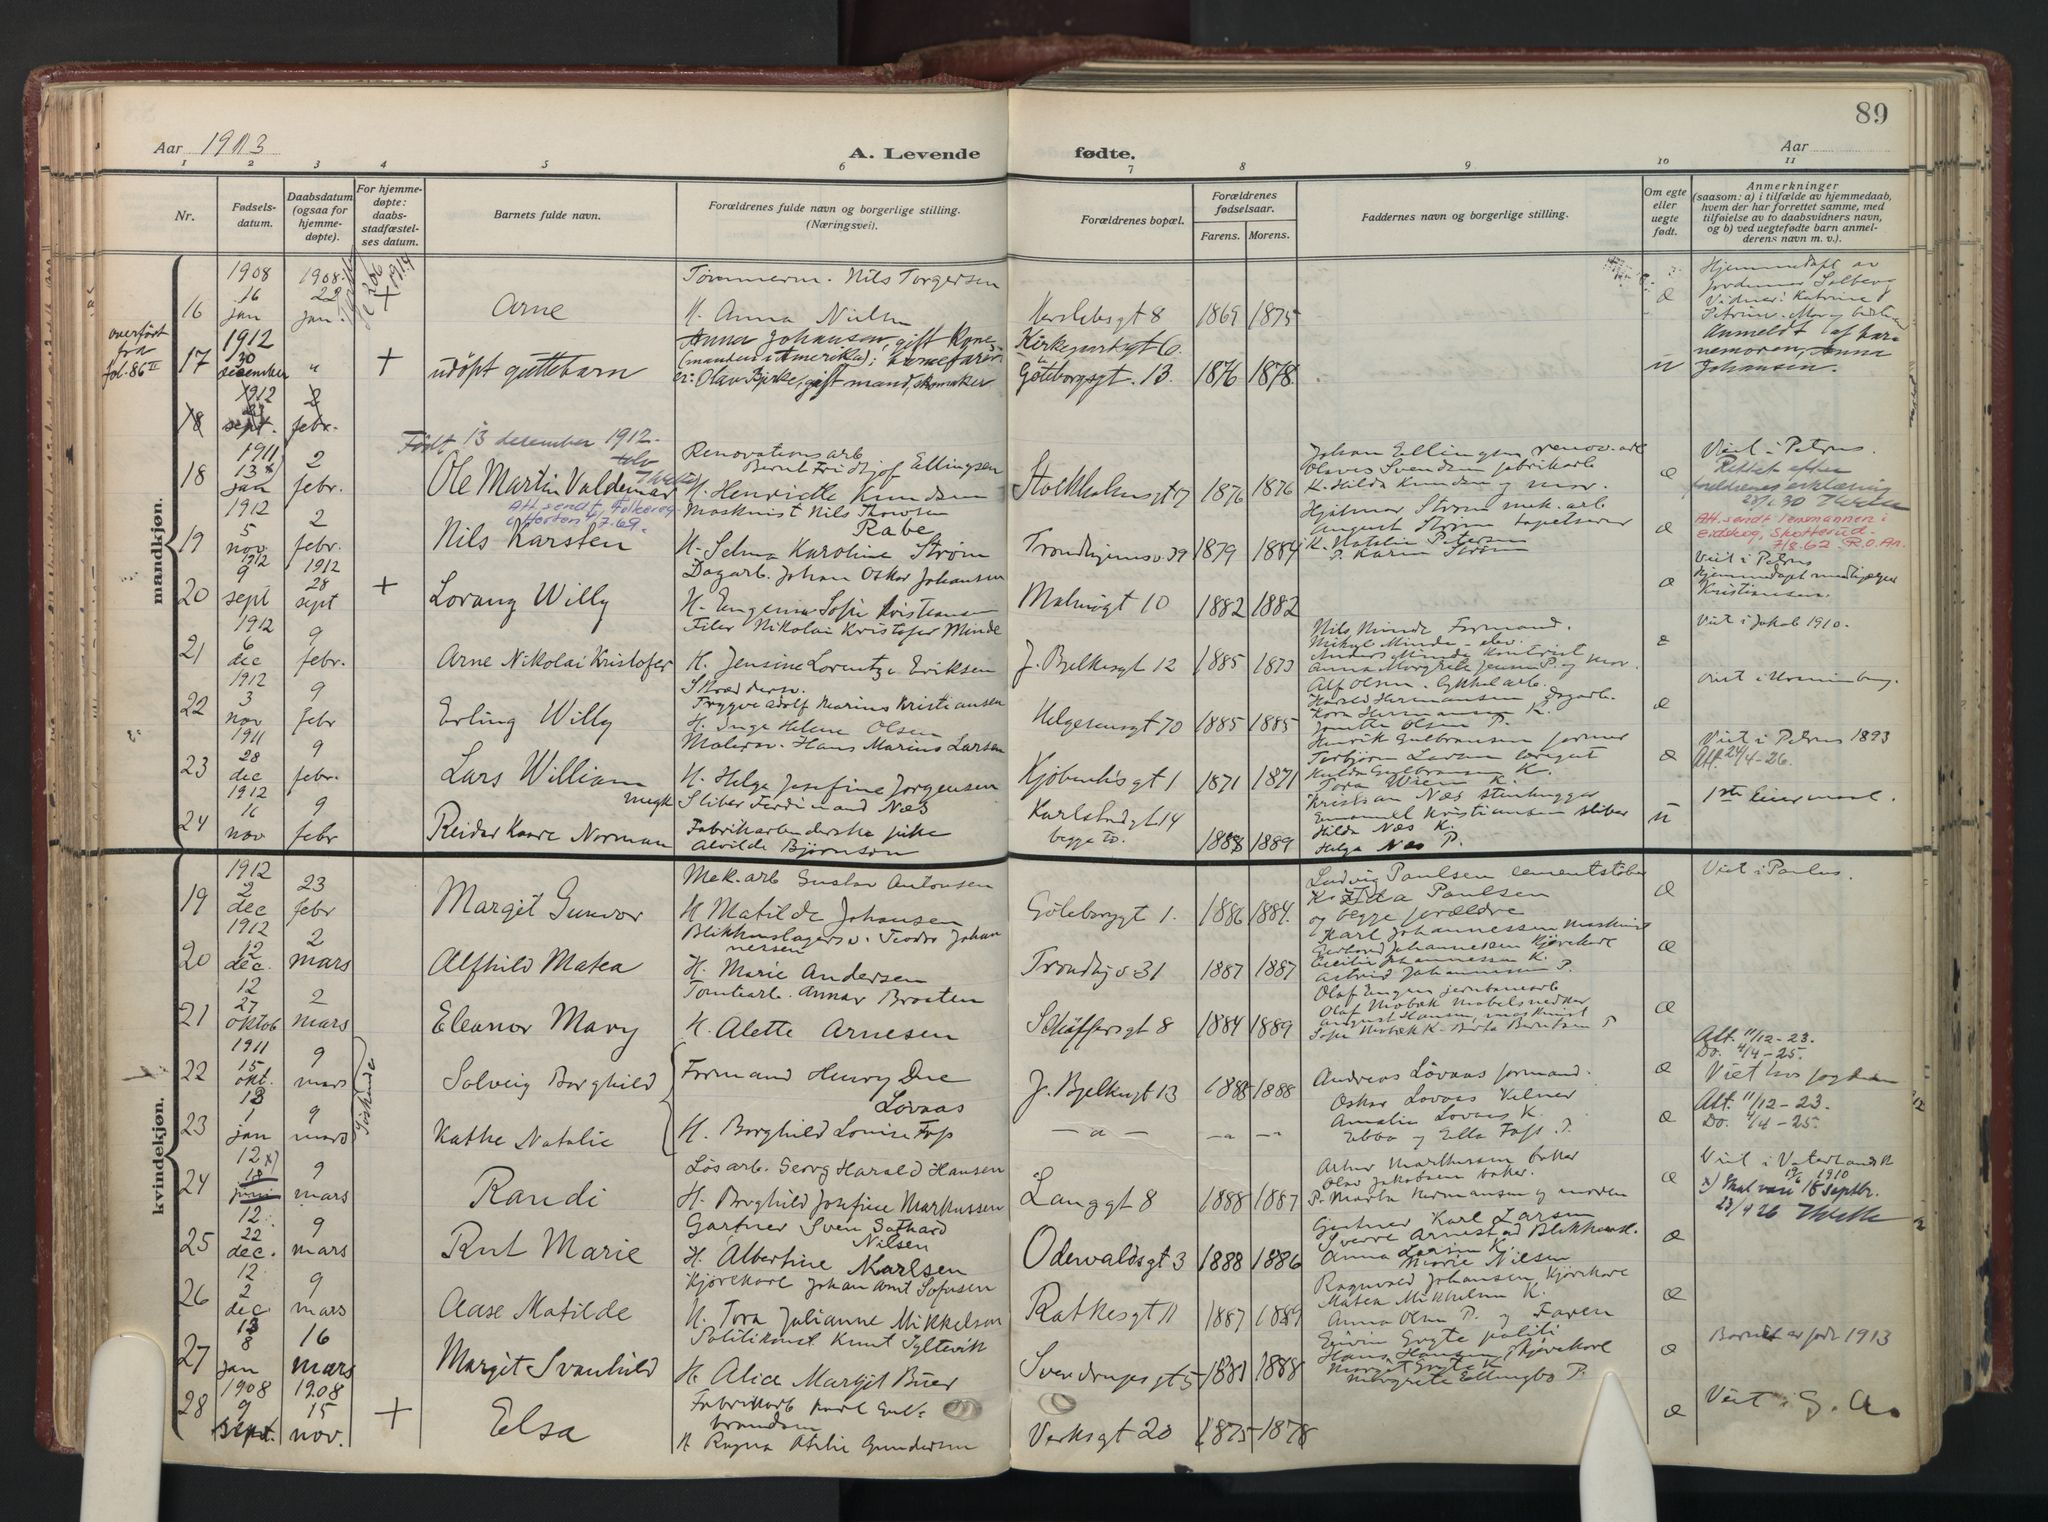 89
Aar 1913
A. Levende fødte.
Aar
1 2 3 4 5 6 7 8 9 10 11
Nr.
Fødsels-
datum.
Daabsdatum
(ogsaa for
hjemme-
døpte).
For hjemme-
døpte:
daabs-
stadfæstel-
ses datum.
Barnets fulde navn.
Forældrenes fulde navn og borgerlige stilling.
(Næringsvei).
Forældrenes bopæl.
Forældrenes
fødselsaar.
Farens. Morens.
Faddernes navn og borgerlige stilling.
Om egte
eller
uegte
født.
Anmerkninger
(saasom: a) i tilfælde av hjemmedaab,
hvem der har forrettet samme, med
tilføielse av to daabsvidners navn,
og b) ved uegtefødte barn anmel-
derens navn m. v.).
mandkjøn.
16 1908 16 jan 1908 22 jan. + Arne
Tømmerm. Nils Torgersen
H. Anna Nielsen
Herslebsgt 8 1869 1875 æ
Hjemmedøpt av
jordemor Solberg
overført
fra
fol. 86 II
17 1912 30 desember " + udøpt guttebarn
Anna Johansen, gift Kone
(manden i Amerika); barnefar
er: Olav Bjerke, gift mand, skomaker
Kirkegaardsgt 6.
Göteborgsgt. 13. 1876 1878 u
Anmeldt af bar-
nemoren, Anna
Johansen.
18 1912 sept. 2 febr.
Født 13 desember 1912.
18 1911 13 jan 2 febr. Ole Martin Valdemar
Renovationsarb
Bernt Fridtjof Ellingsen
H. Henriette Knudsen
Stockholmsgt 7 1876 1876
Johan Ellingsen renov. arb
Olaves Svendsen fabrikarb
K. Hilda Knudsen og mor. æ
Viet i Petrus.
Rettet efter
foreldrenes erklæring
28/1 30
AH. sendt, Folkereg.
i Horten 4/7-69.
19 1912 5 nov. 2 febr. Nils Karsten
Maskinist Nils Thorsen
Rabe
H. Selma Karoline Strøm
Trondhjemsv. 79 1879 1884
Hjalmar Strøm mek. arb
August Strøm tapetserer
K. Natalie Petersen
P. Karin Strøm æ
AH. sendt lensmannen i
Eidskog, Skotterud
7/8.62. R.O.An.
Viet i Petrus
20 1912 9 sept 1912 28 sept + Lorang Willy
Dagarb. Johan Oskar Johansen
H. Eugenia Sofie Kristiansen
Malmøgt 10 1882 1882 æ
Hjemmedøpt
Kristiansen.
21 1912 6 dec 9 febr. Arne Nikolai Kristofer
Filer Nikolai Kristofer Minde
H. Jensine Lorentze Eriksen
J. Bjelkesgt 12 1885 1873
Nils Minde Formand.
Mikal Minde elev.
Anders Minde Kontorist
Anna Margrete Jensen P. og mor. æ
Viet i Jakob 1910.
22 1912 3 nov 9 febr Erling Willy
Skræddersv.
Trygve Adolf Marius Kristiansen
H. Inga Helene Olsen
Helgesensgt 70 1885 1885
Alf Olsen. Cykkelarb.
Harald Hermansen Dagarb.
Kora Hermansen K.
Olsen P. æ
23 1911 28 dec 9 febr. Lars William
Malersv. Hans Marius Larsen
H. Helga Josefine Jørgensen
Kjøbenhsgt 1 1871 1871
Henrik Gulbransen former
Torbjørn Larsen
Hulda Gulbransen K.
Tora Wiem K. æ
Viet i Petrus 1893
Att. 24/4-26.
24 1912 16 nov 9 febr Reidar Kaare Norman
ungk. Sliber Ferdinand Næs
Fabrikarbeiderske pike
Alvilde Bjørnson
Karlstadgt 14
begge to. 1888 1889
Kristian Næs stenhugger
Emanuell Kristiansen sliber
Hilda Næs K.
Helga Næs P. u
1ste leiermaal.
kvindekjøn.
19 1912 2 dec 23 febr Margit Gunvor
Mek. arb Gustav Antonsen
H. Matilde Johansen
Göteborggt 1. 1886 1884.
Ludvig Paulsen cementstøber
K. Paulsen
og begge forældre æ
Viet i Paulus.
20 1912 12 dec. 2 mars Alfhild Matea
Blikkenslagersv. Teodor Johan-
nersen
H. Marie Andersen
Trondhjv 31 1887 1887
Karl Johannessen maskinist
Johannessen Kjørekarl
Cecilie Johannessen K.
Astrid Johannessen P. æ
21 12 27 oktob 2 mars Eleanor Mary
Tomtearb. Annar Braaten
H. Alette Arnesen
Schøffersgt 8 1884 1889
Olaf Engen jernbanearb
Olaf Mobæk Møbelsnedker
August Hansen, maskinist
Sofie Mobæk K. Berta Berntsen P æ
Søskende
22 1911 15 okt. 9 mars Solveig Borghild
23 13 1 jan 9 mars Kathe Natalie
Formand Henry Due
Løvaas
H. Borghild Louise Foss
J. Bjelkesgt 13 1888 1888
— a — — a — — " —
Andreas Løvaas formand.
Oskar Løvaas Kelner
Amalie Løvaas K.
Ebba og Ella Foss P. æ æ
Att. 11/12-23.
Do. 4/4-25.
Viet hos sogneprest
Att. 11/12-23.
Do. 4/4-25.
24 12 x) 18 juni 9 mars Randi
Løsarb. Georg Harald Hansen
H. Borghild Josefine Markussen
Langgt 8 1888 1887
Artur Markussen bøker
Olav Jakobsen bøker.
P. Marta Hermansen og moren æ
Viet i Vaterlands K
19/6 1910
x) skal være 18 septbr.
23/4 26
25 12 22 dec. 9 mars Rut Marie
Gartner Sven Gothard
Nilsen
H. Albertine Karlsen
Odewaldsgt 3 1888 1886
Gartner Karl Larsen
Sverre Arnestad Blikkensl.
Anna Larsen K.
Marie Nilsen æ
26 12 2 dec 9 mars Aase Matilde
Kjørekarl Johan Arnt Sofusen
H. Tora Julianne Mikkelsen
Ratkesgt 11 1887 1889
Ragnvald Johansen Kjørekarl
Matea Mikkelsen K.
Anna Olsen P. og Faren æ
27 13 8 jan 16 mars Margit Svanhild
Politikonst Knut Syltevik
H. Alice Margit Buer
Sverdrupsgt 5 1883 1888
Edvin Gryte politi
Hans Hansen, Kjørekarl
Margit Gryte K
Margrete Ellingbø P. æ
Barnet er født 1913
28 1908 9 sept. 1908 15 nov. + Elsa
Fabrikarb Karl Gul-
brandsen
H. Ragna Otilie Gundersen
Verksgt 20 1875 1878 æ
Viet i G. A.